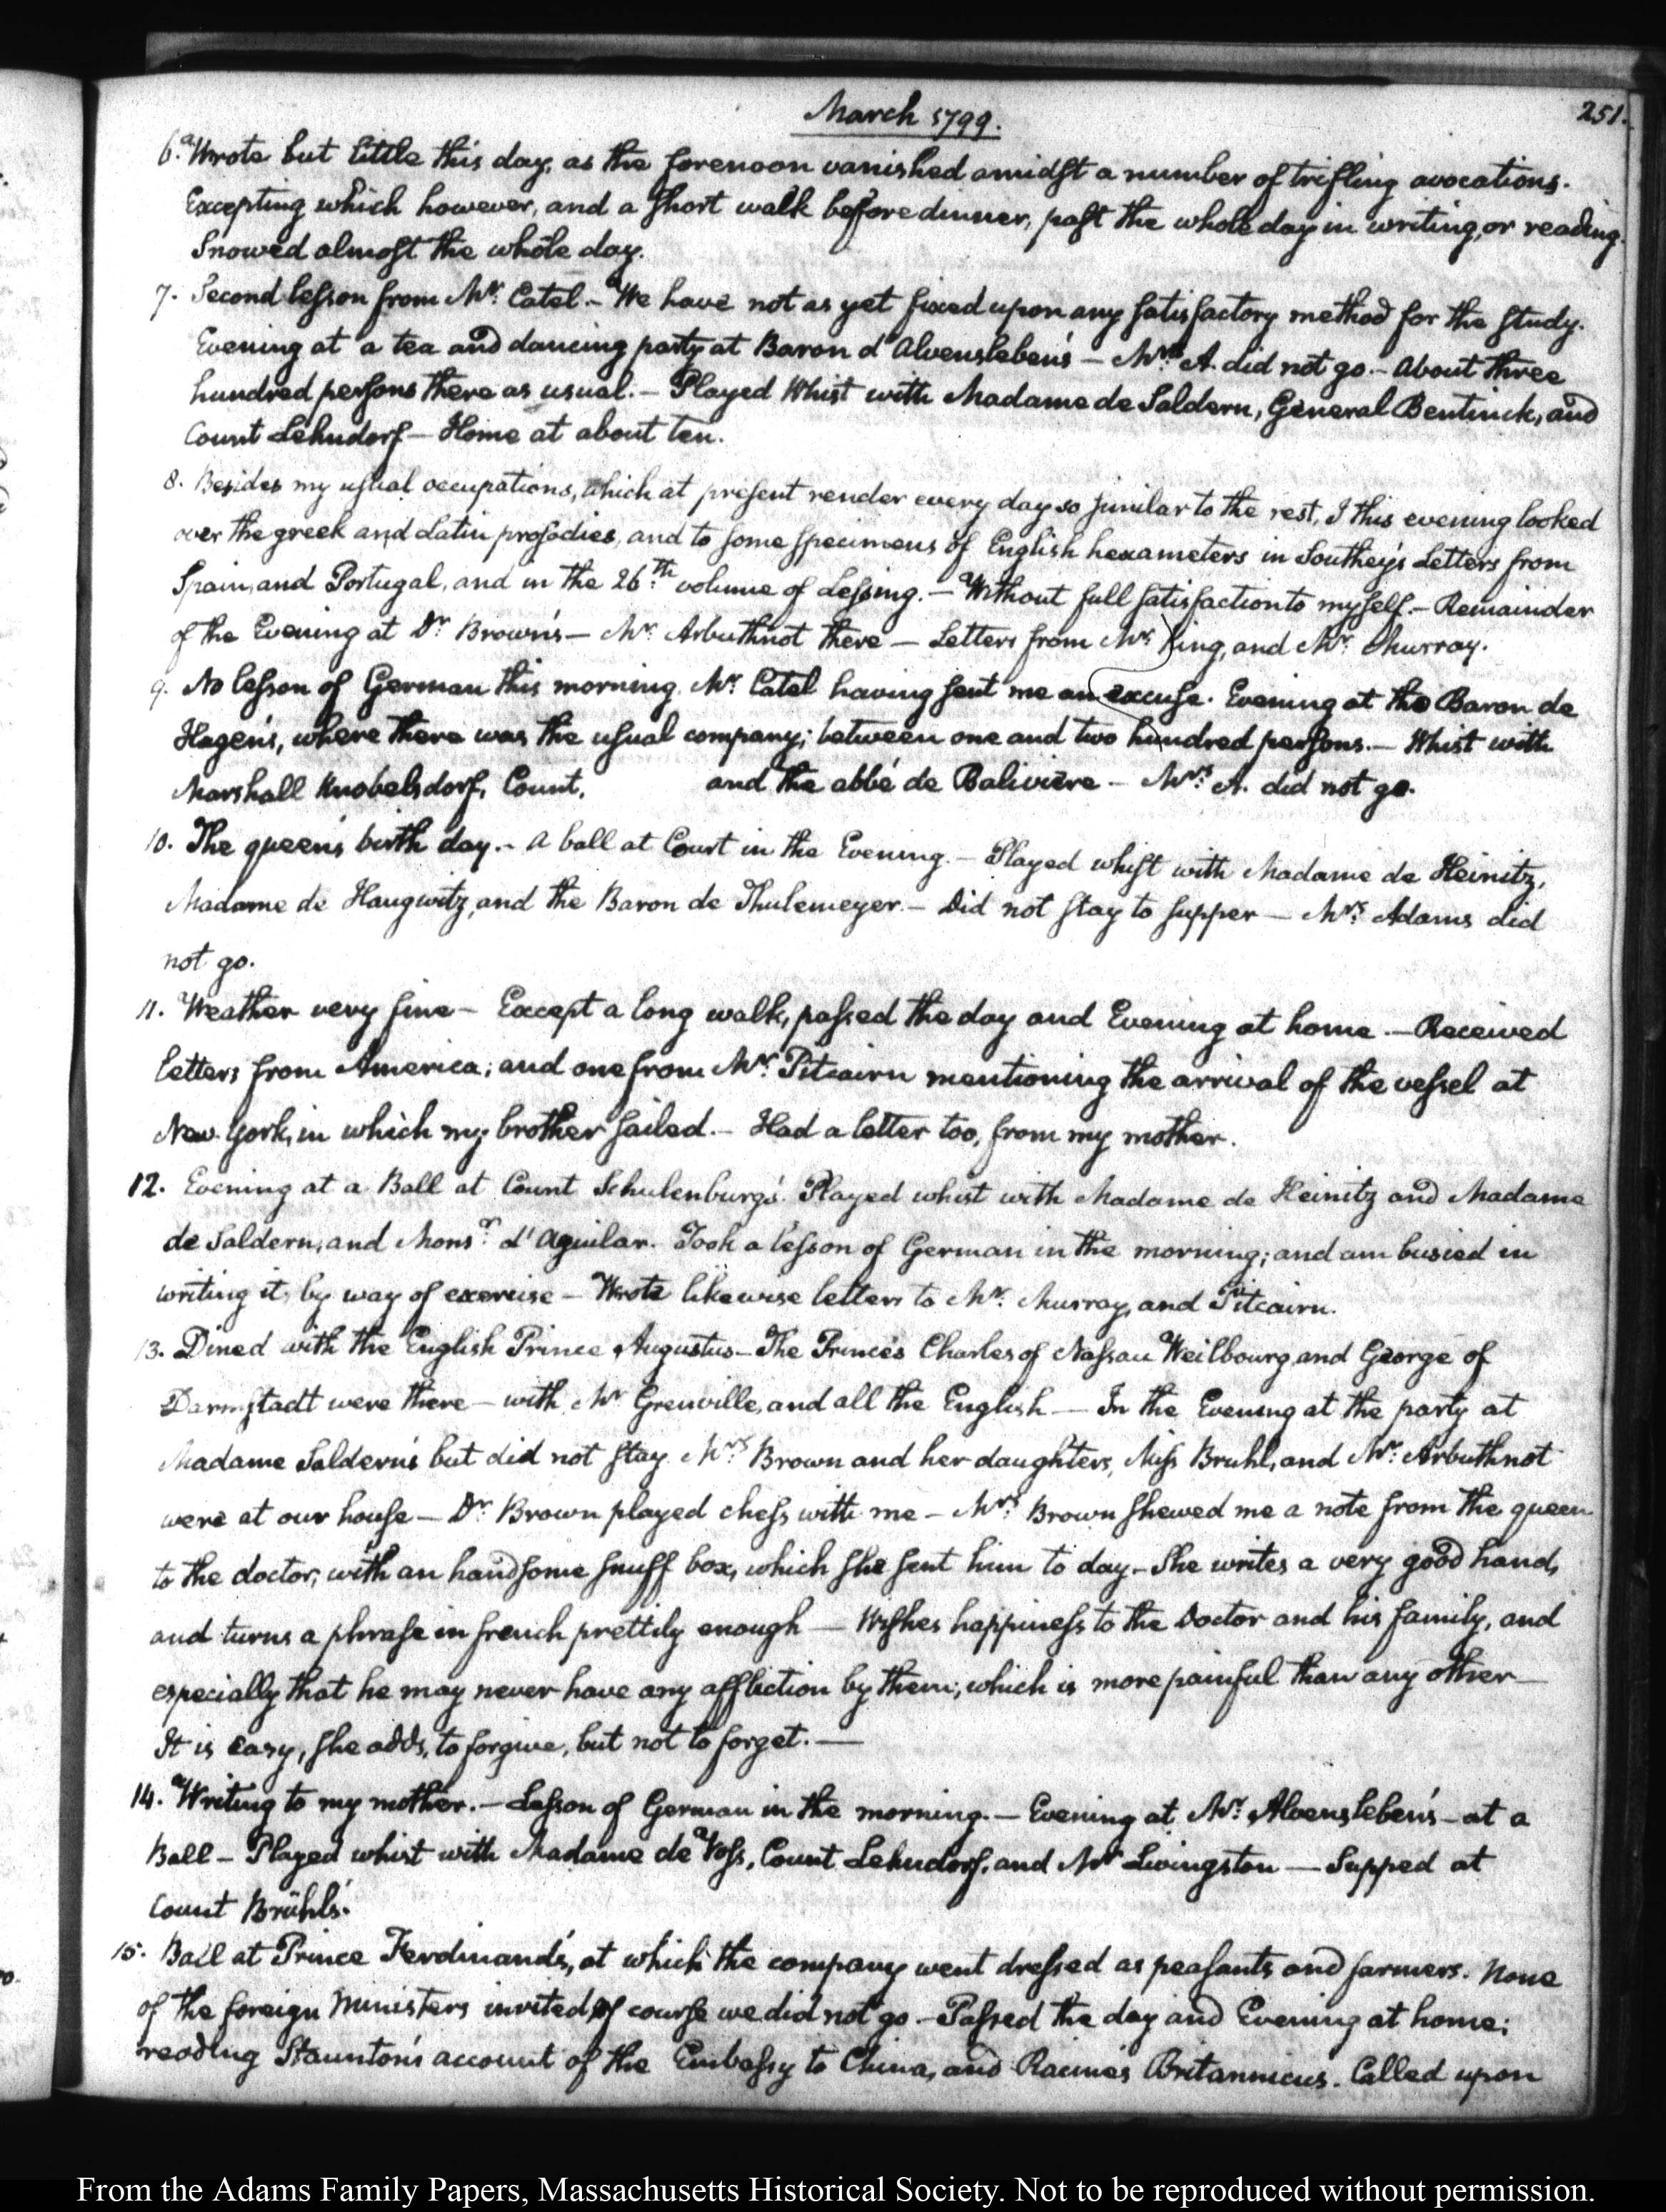 March 1799.
251.
6. Wrote but little this day, as the forenoon vanished amidst a number of trifling avocations.
Excepting which however, and a short walk before dinner, past the whole day in writing, or reading.
Snowed almost the whole day.
7. Second lesson from Mr. Catel.— We have not as yet fixed upon any satisfactory method for the study.
Evening at a tea and dancing party at Baron d'Alvensleben's — Mrs. A. did not go.— About three
hundred persons there as usual.— Played Whist with Madame de Saldern, General Bentinck, and
Count Lehndorf — Home at about ten.
8. Besides my usual occupations, which at present render every day so similar to the rest, I this evening looked
over the greek and Latin prosodies, and to some specimens of English hexameters in Southey's Letters from
Spain, and Portugal, and in the 26.th volume of Lessing.— Without full satisfaction to myself.— Remainder
of the Evening at Dr. Brown's — Mr. Arbuthnot there — Letters from Mr. King, and Mr. Murray.
9. No lesson of German this morning. Mr. Catel having sent me an excuse. Evening at the Baron de
Hagen's, where there was the usual company; between one and two hundred persons.— Whist with
Marshall Knobelsdorf, Count, and the abbé de Balivière — Mrs. A. did not go.
10. The queen's birth day.— A ball at Court in the Evening.— Played whist with Madame de Heinitz,
Madame de Haugwitz, and the Baron de Thulemeyer.— Did not stay to supper — Mrs. Adams did
not go.
11. Weather very fine — Except a long walk, passed the day and Evening at home.— Received
letters from America; and one from Mr. Pitcairn mentioning the arrival of the vessel at
New York, in which my brother sailed.— Had a letter too, from my mother.
12. Evening at a Ball at Count Schulenburg's. Played whist with Madame de Heinitz and Madame
de Saldern, and Monsr. d'Aguilar. Took a lesson of German in the morning; and am busied in
writing it, by way of exercise — Wrote likewise letters to Mr. Murray, and Pitcairn.
13. Dined with the English Prince Augustus — The Princes Charles of Nassau Weilbourg, and George of
Darmstadt were there — with Mr. Grenville, and all the English — In the Evening at the party at
Madame Saldern's but did not stay. Mrs. Brown and her daughters, Miss Bruhl, and Mr. Arbuthnot
were at our house — Dr. Brown played chess with me — Mrs. Brown shewed me a note from the queen
to the doctor, with an handsome snuff box, which she sent him to day — She writes a very good hand,
and turns a phrase in french prettily enough — Wishes happiness to the Doctor and his family, and
especially that he may never have any affliction by them; which is more painful than any other —
It is easy, she adds, to forgive, but not to forget.—
14. Writing to my mother.— Lesson of German in the morning.— Evening at Mr. Alvensleben's — at a
Ball — Played whist with Madame de Voss, Count Lehndorf, and Mr Livingston — Supped at
Count Brühl's.
15. Ball at Prince Ferdinand's, at which the company went dressed as peasants and farmers. None
of the foreign Ministers invited, of course we did not go.— Passed the day and Evening at home;
reading Staunton's account of the Embassy to China, and Racine's Britannicus. Called upon
From the Adams Family Papers, Massachusetts Historical Society. Not to be reproduced without permission.